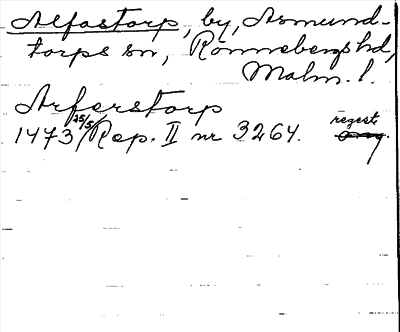 Alfastorp, by, Asmund-
torps sn, Rönnebergs hd,
Malm. l.
Arferstorp
1473 25/5 Rep. II nr 3264. regest.